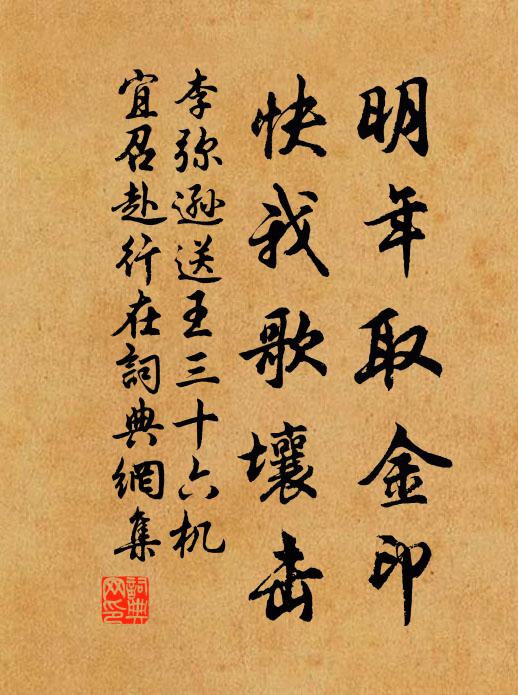 明年取金印
快我歌壤击
李弥逊送王三十六机
宜召赴行在詞典網集